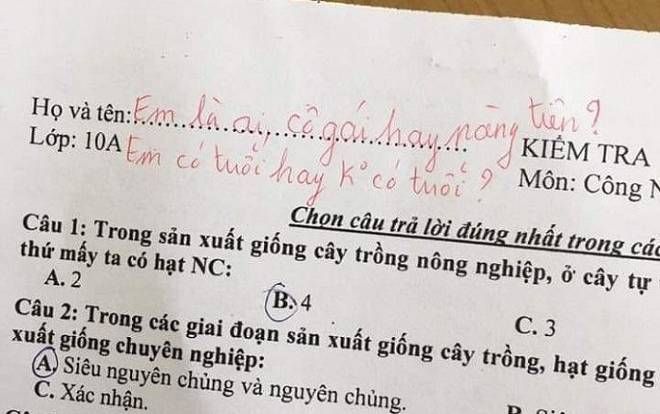 Họ và tên: Em là ai, cô gái hay nàng tiên?
KIỂM TRA
Lớp: 10A Em có tuổi hay K° có tuổi?
Môn: Công
Chọn câu trả lời đúng nhất trong các
Câu 1: Trong sản xuất giống cây trồng nông nghiệp, ở cây tự
thứ mấy ta có hạt NC:
A. 2
B. 4
C. 3
Câu 2: Trong các giai đoạn sản xuất giống cây trồng, hạt giống
xuất giống chuyên nghiệp:
A. Siêu nguyên chủng và nguyên chủng.
C. Xác nhận.